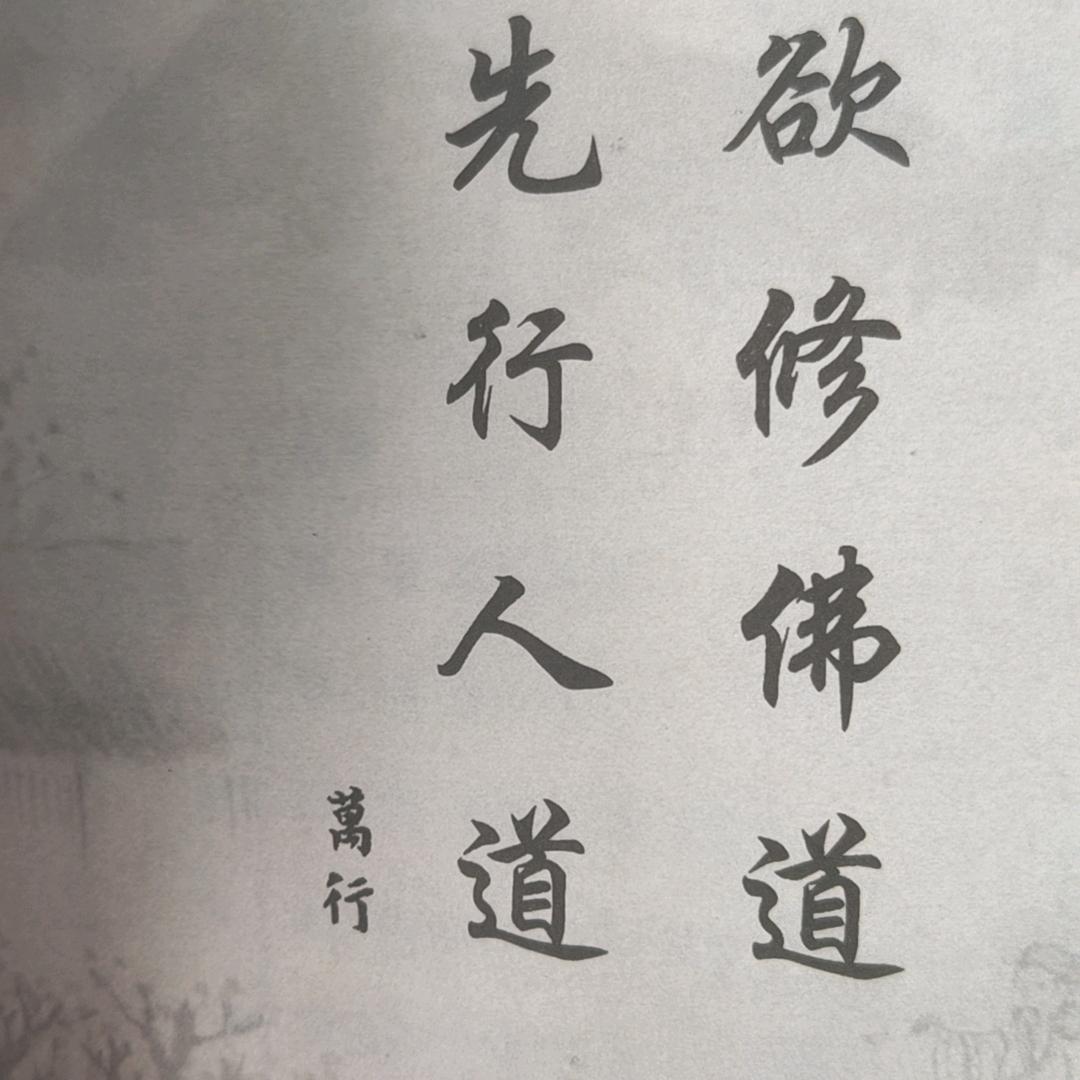 欲修佛道
先行人道
萬行